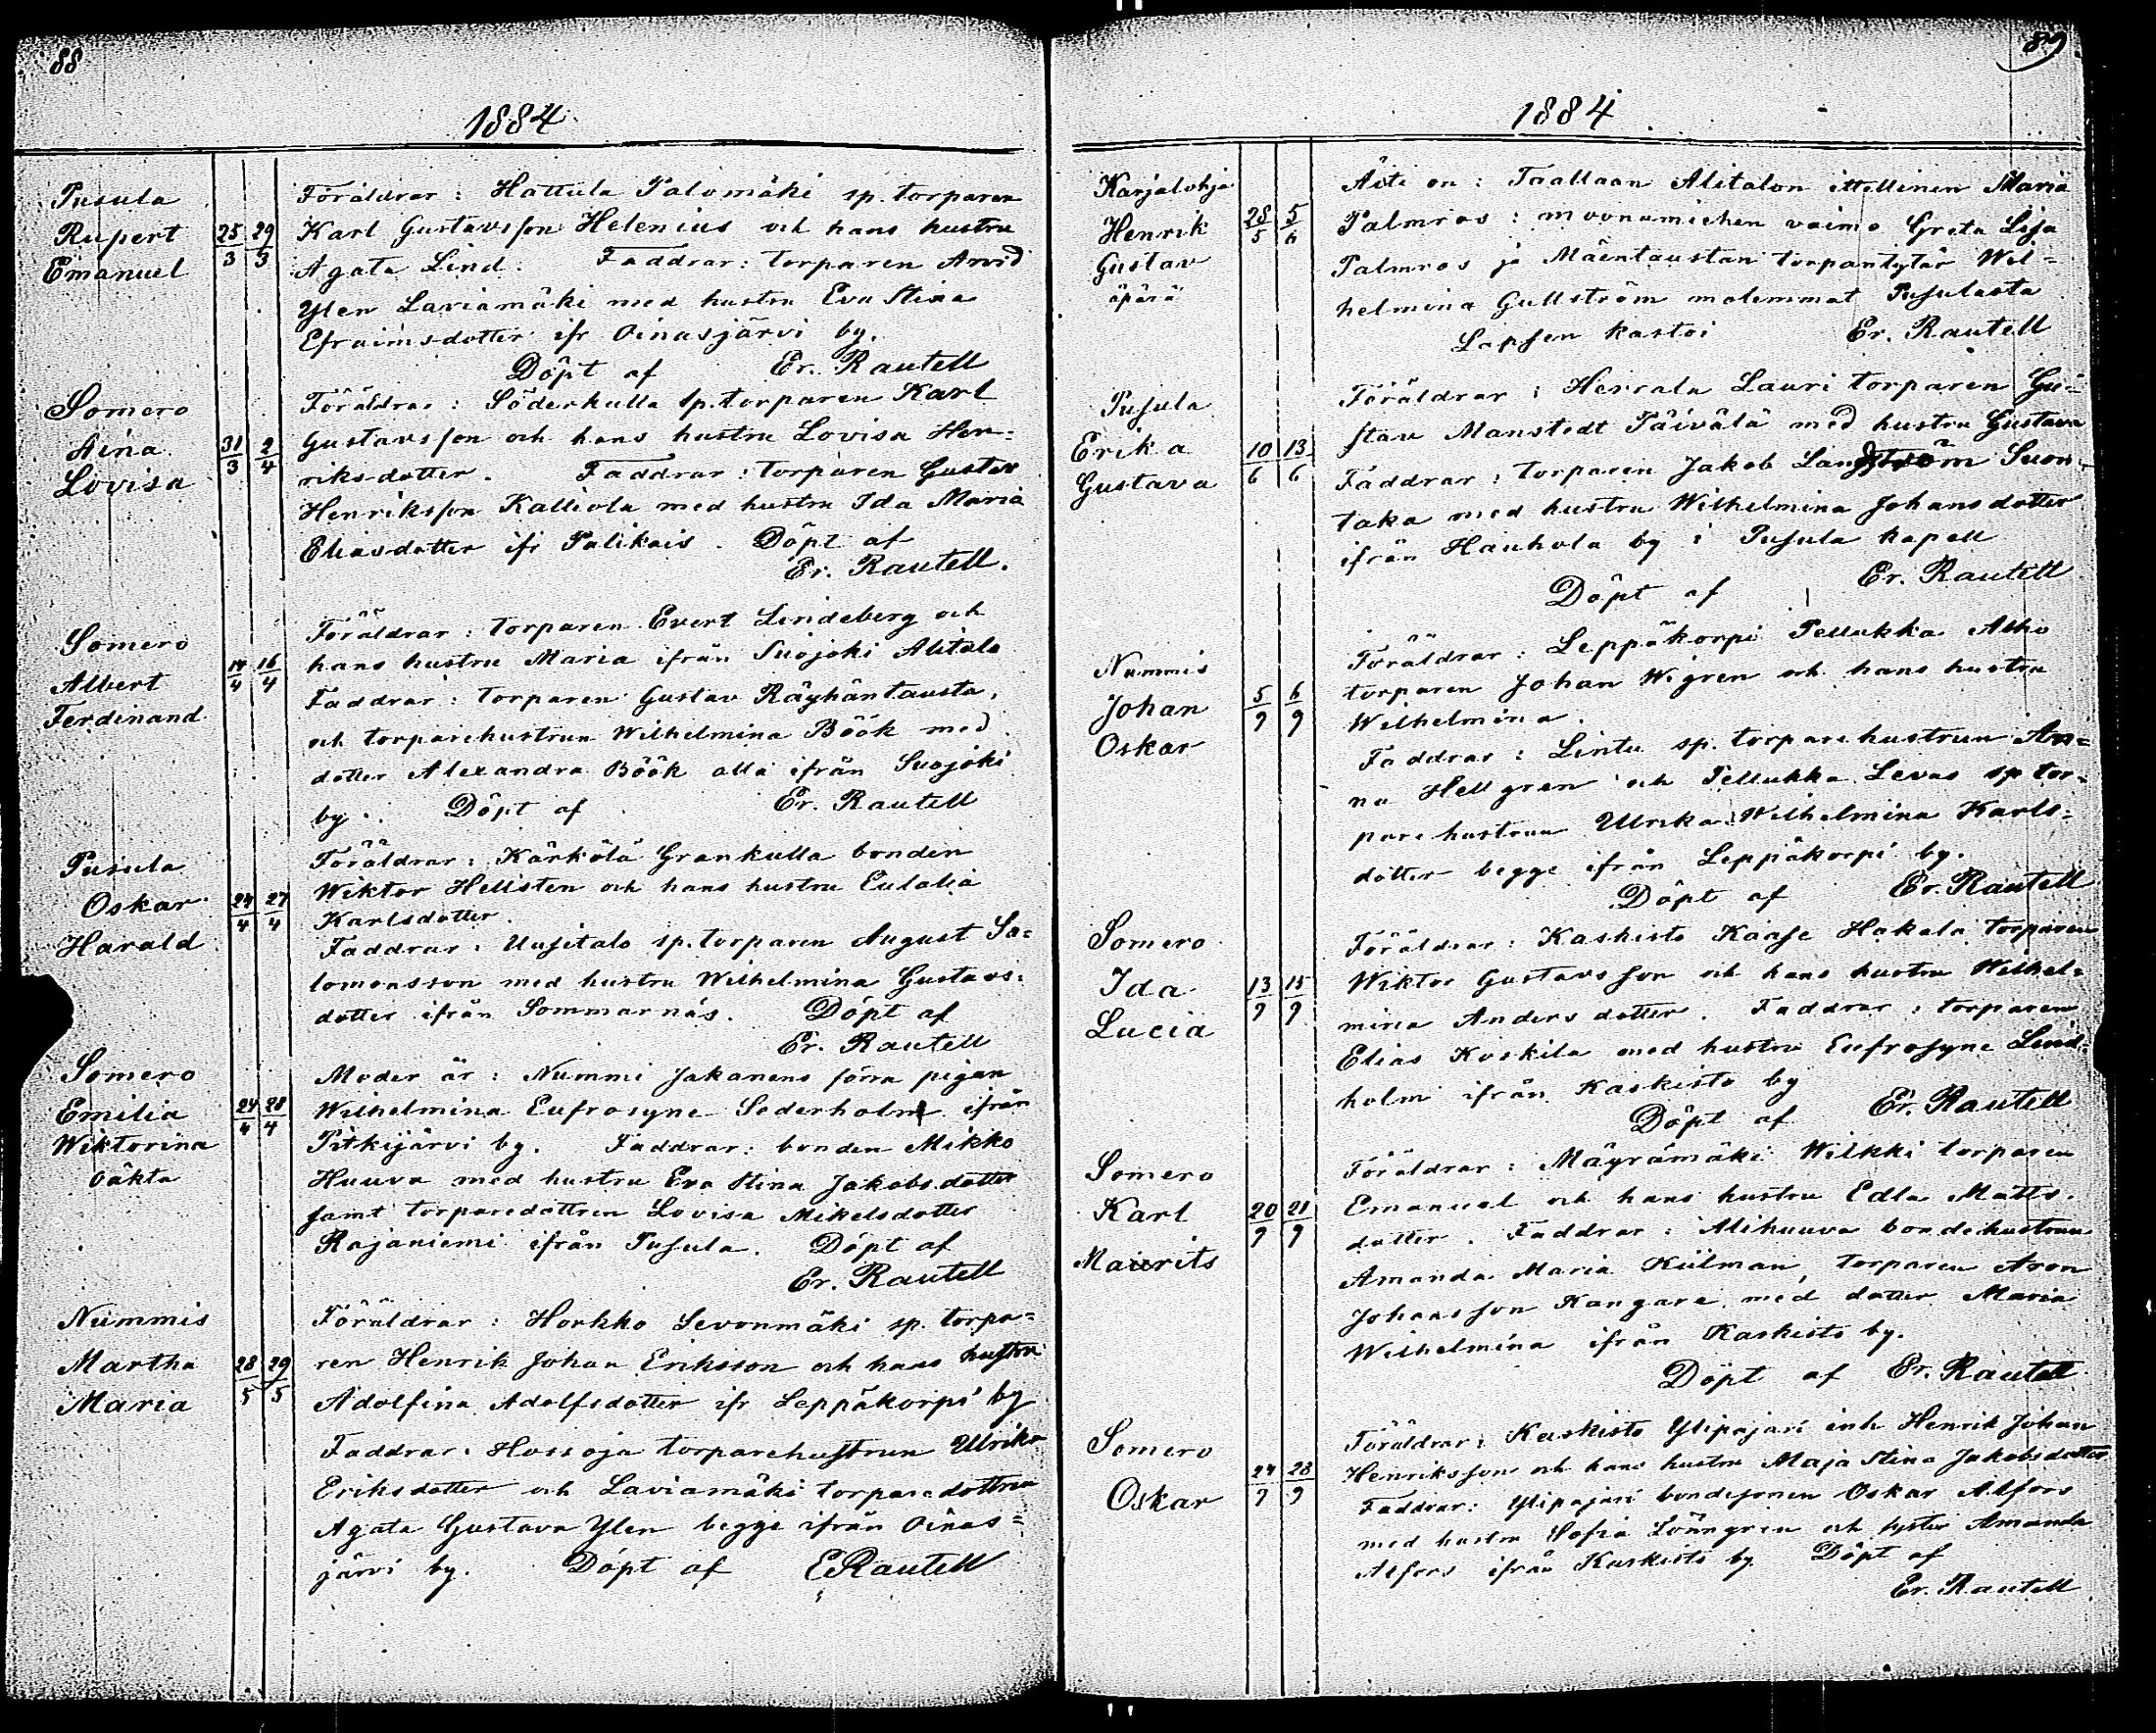 88
1884
Pusula
Rupert
Emanuel
25/3 29/3
Föräldrar: Hattula Palomäki sp. torparen
Karl Gustavsson Helenius och hans hustru
Agata Lind. Faddrar: torparen Arvid
Ylen Laviamäki med hustru Eva Stina
Efraimsdotter ifr Oinasjärvi by.
Döpt af Er. Rautell
Somero
Aina
Lovisa
31/3 2/4
Föräldrar: Söderkulla sp. torparen Karl
Gustavsson och hans hustru Lovisa Hen=
riksdotter. Faddrar: torparen Gustav
Henriksson Kalliola med hustru Ida Maria
Eliasdotter ifr Palikais. Döpt af
Er. Rautell.
Somero
Albert
Ferdinand
14/4 16/4
Föräldrar: torparen Evert Lindeberg och
hans hustru Maria ifrån Suojoki Alitalo
Faddrar: torparen Gustav Räyhäntausta,
och torparehustrun Wilhelmina Böök med
dotter Alexandra Böök alla ifrån Suojoki
by. Döpt af Er. Rautell
Pusula
Oskar
Harald
24/4 27/4
Föräldrar: Kärkölä Grankulla bonden
Wiktor Hellsten och hans hustru Eulalia
Karlsdotter.
Faddrar: Uusitalo sp. torparen August Sa=
lomonsson med hustru Wilhelmina Gustavs=
dotter ifrån Sommarnäs. Döpt af
Er. Rautell
Somero
Emilia
Wiktorina
oäkta
24/4 28/4
Moder är: Nummi Jakanens förra pigan
Wilhelmina Eufrosyne Söderholm ifrån
Pitkijärvi by. Faddrar: bonden Mikko
Huuva med hustru Eva Stina Jakobsdotter
samt torparedottren Lovisa Mikelsdotter
Rajaniemi ifrån Pusula. Döpt af
Er. Rautell
Nummis
Martha
Maria
28/5 29/5
Föräldrar: Horkko Levonmäki sp. torpa=
ren Henrik Johan Eriksson och hans hustru
Adolfina Adolfsdotter ifr Leppäkorpi by
Faddrar: Hossoja torparehustrun Ulrika
Eriksdotter och Laviamäki torparedottren
Agata Gustava Ylen begge ifrån Oinas=
järvi by. Döpt af E Rautell
89
1884
Karjalohja
Henrik
Gustav
äpärä
28/5 5/6
Äiti on: Taallaan Alitalon ittellinen Maria
Palmros: muonamiehen vaimo Greta Lisa
Palmros ja Mäentaustan torpantytär Wil=
helmina Gullström molemmat Pusulasta
Lapsen kastoi Er. Rautell
Pusula
Erika
Gustava
10/6 13/6
Föräldrar: Herrala Lauri torparen Gu=
stav Manstedt Päivälä med hustru Gustava
Faddrar: torparen Jakob Landström Suon=
taka med hustru Wilhelmina Johansdotter
ifrån Hauhola by i Pusula kapell
Döpt af Er. Rautell
Nummis
Johan
Oskar
5/9 6/9
Föräldrar: Leppäkorpi Pellukka Alho
torparen Johan Wigren och hans hustru
Wilhelmina.
Faddrar: Lintu sp. torparehustrun An=
na Hellgren och Pellukka Levas sp tor=
parehustrun Ulrika Wilhelmina Karls=
dotter begge ifrån Leppäkorpi by.
Döpt af Er. Rautell
Somero
Ida
Lucia
13/9 15/9
Föräldrar: Kaskisto Kaase Hakala torparen
Wiktor Gustavsson och hans hustru Wilhel=
mina Andersdotter. Faddrar: torparen
Elias Koskila med hustru Eufrosyne Lind=
holm ifrån Kaskisto by
Döpt af Er. Rautell
Somero
Karl
Maurits
20/9 21/9
Föräldrar: Mäyrämäki Wilkki torparen
Emanuel och hans hustru Edla Matts=
dotter. Faddrar: Alihuuva bondehustrun
Amanda Maria Kiilman, torparen Aron
Johansson Kangare med dotter Maria
Wilhelmina ifrån Kaskisto by.
Döpt af Er. Rautell
Somero
Oskar
24/9 28/9
Föräldrar: Kaskisto Ylipajari inh Henrik Johan
Henriksson och hans hustru Maja Stina Jakobsdotter
Faddrar: Ylipajari bondesonen Oskar Alfors
med hustru Sofia Lönngren och syster Amanda
Alfors ifrån Kaskisto by Döpt af
Er. Rautell